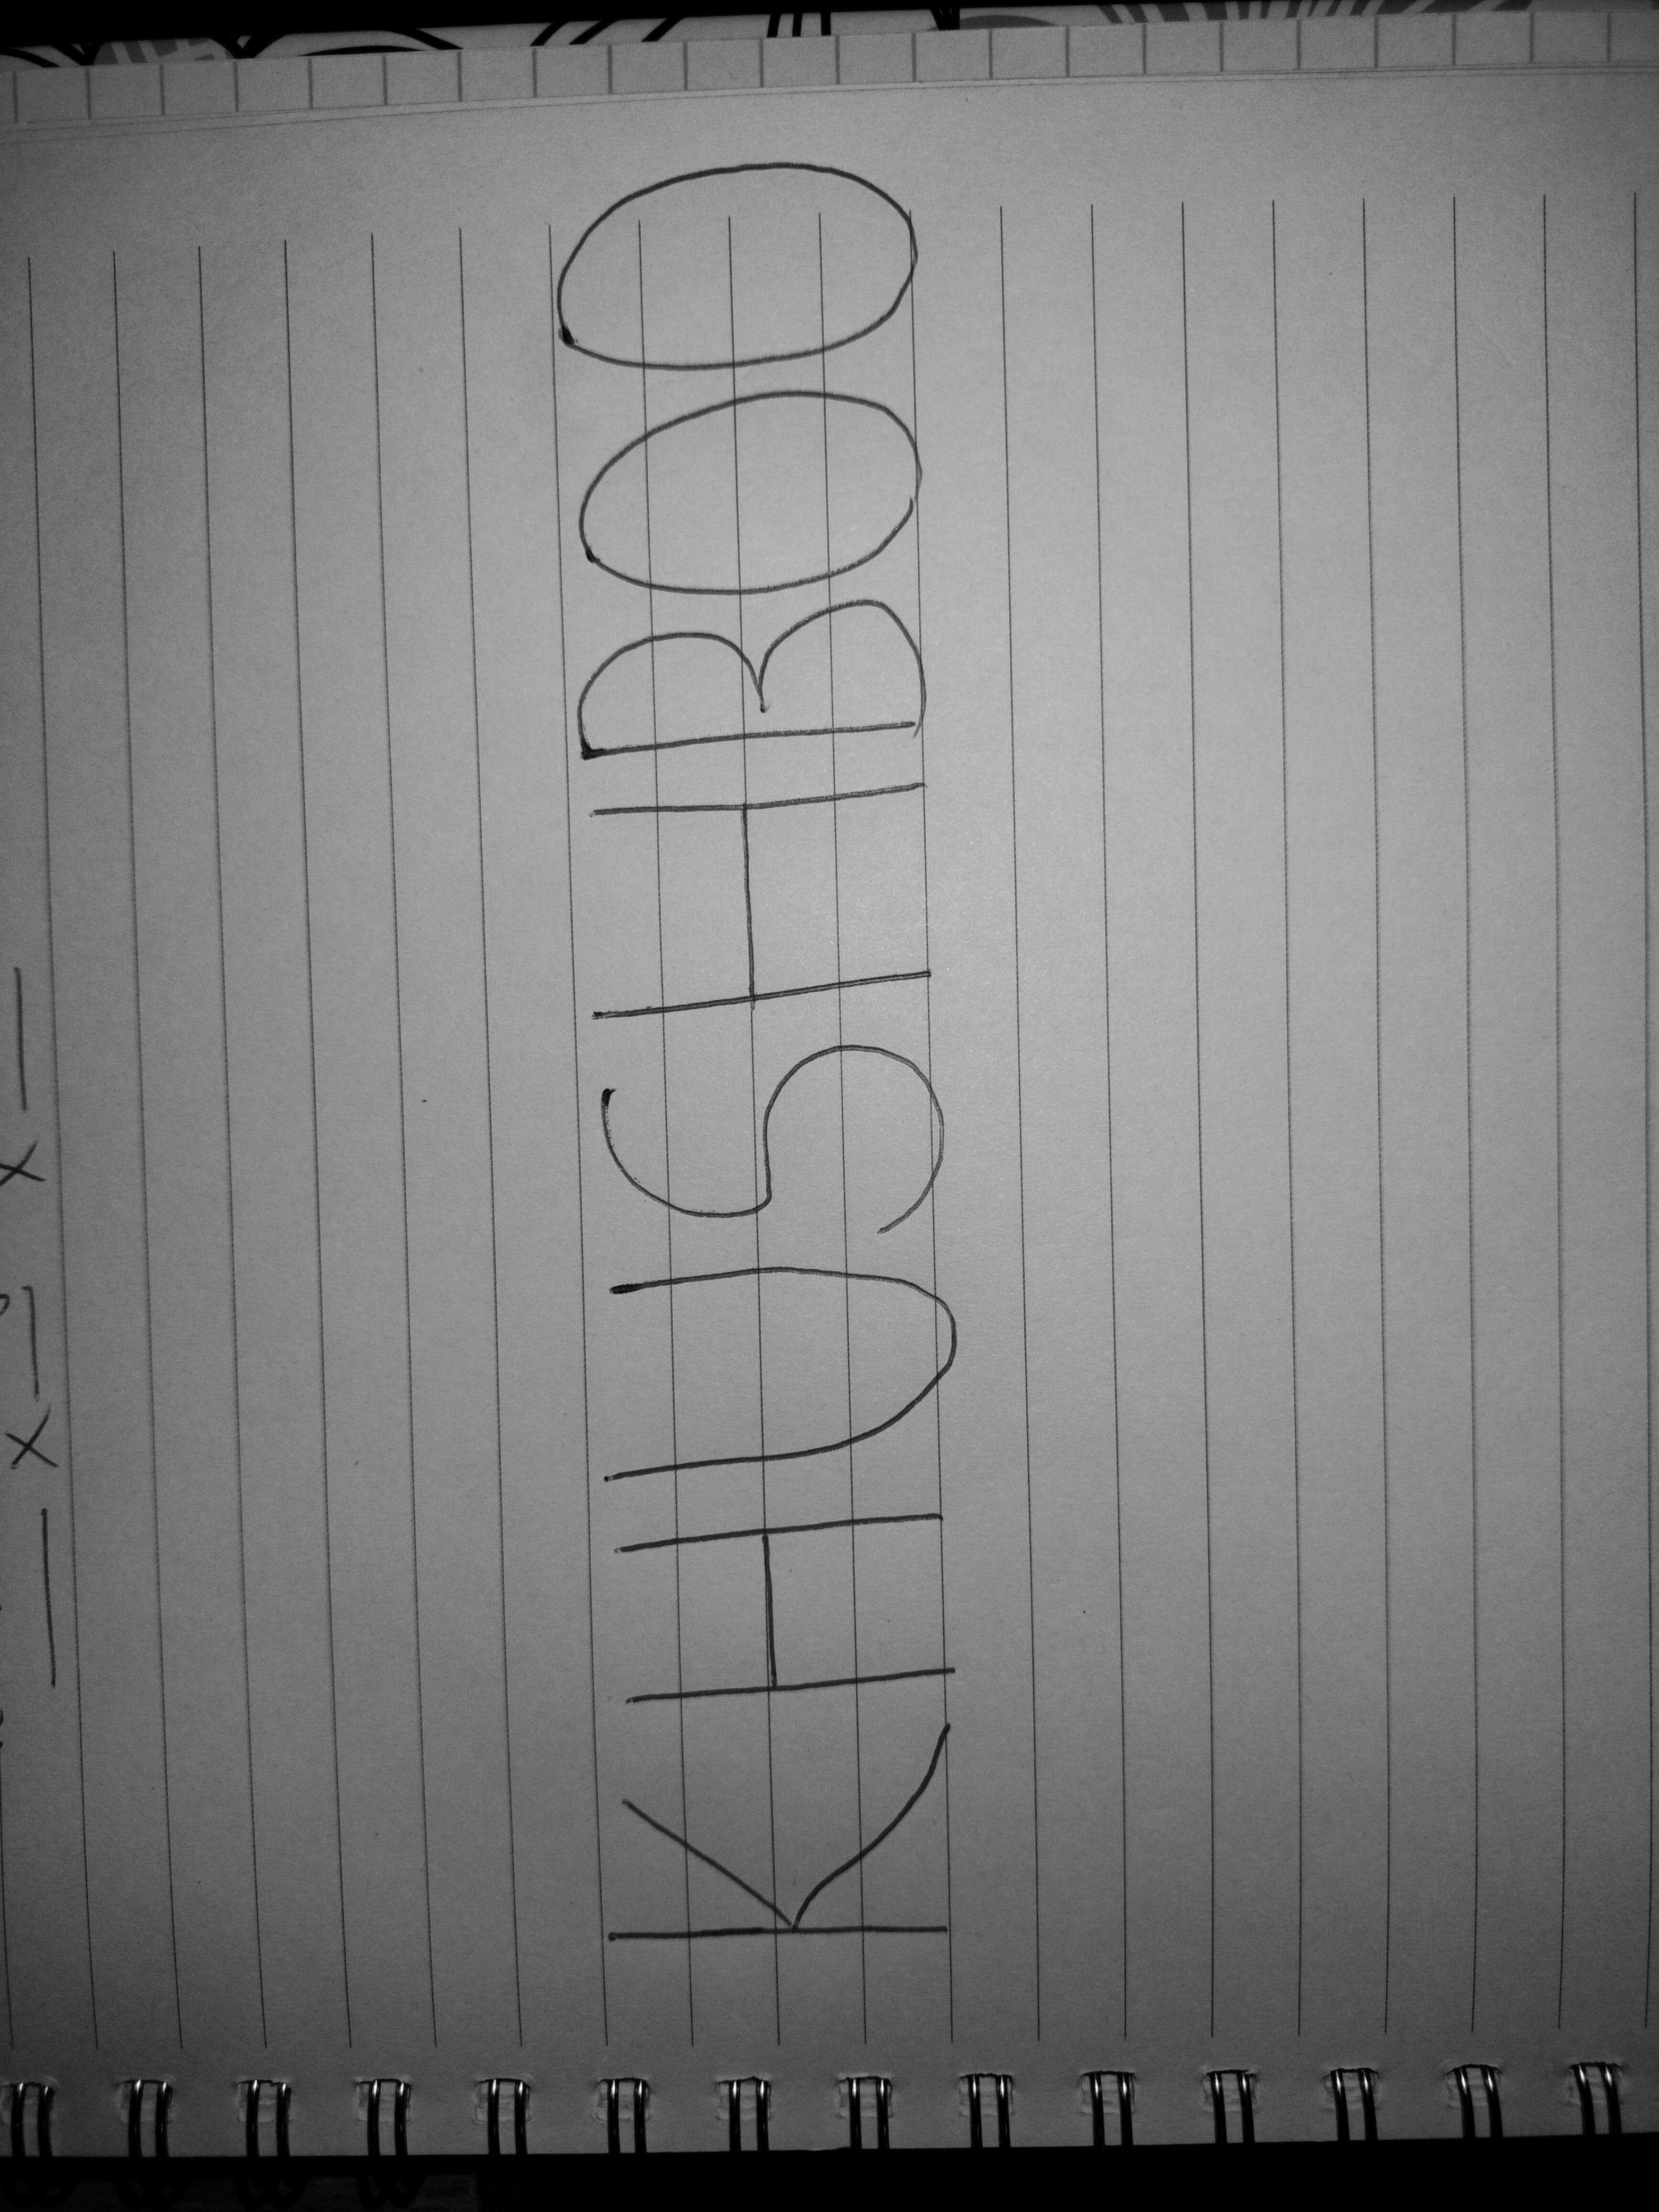 x x
KHUSHBOO